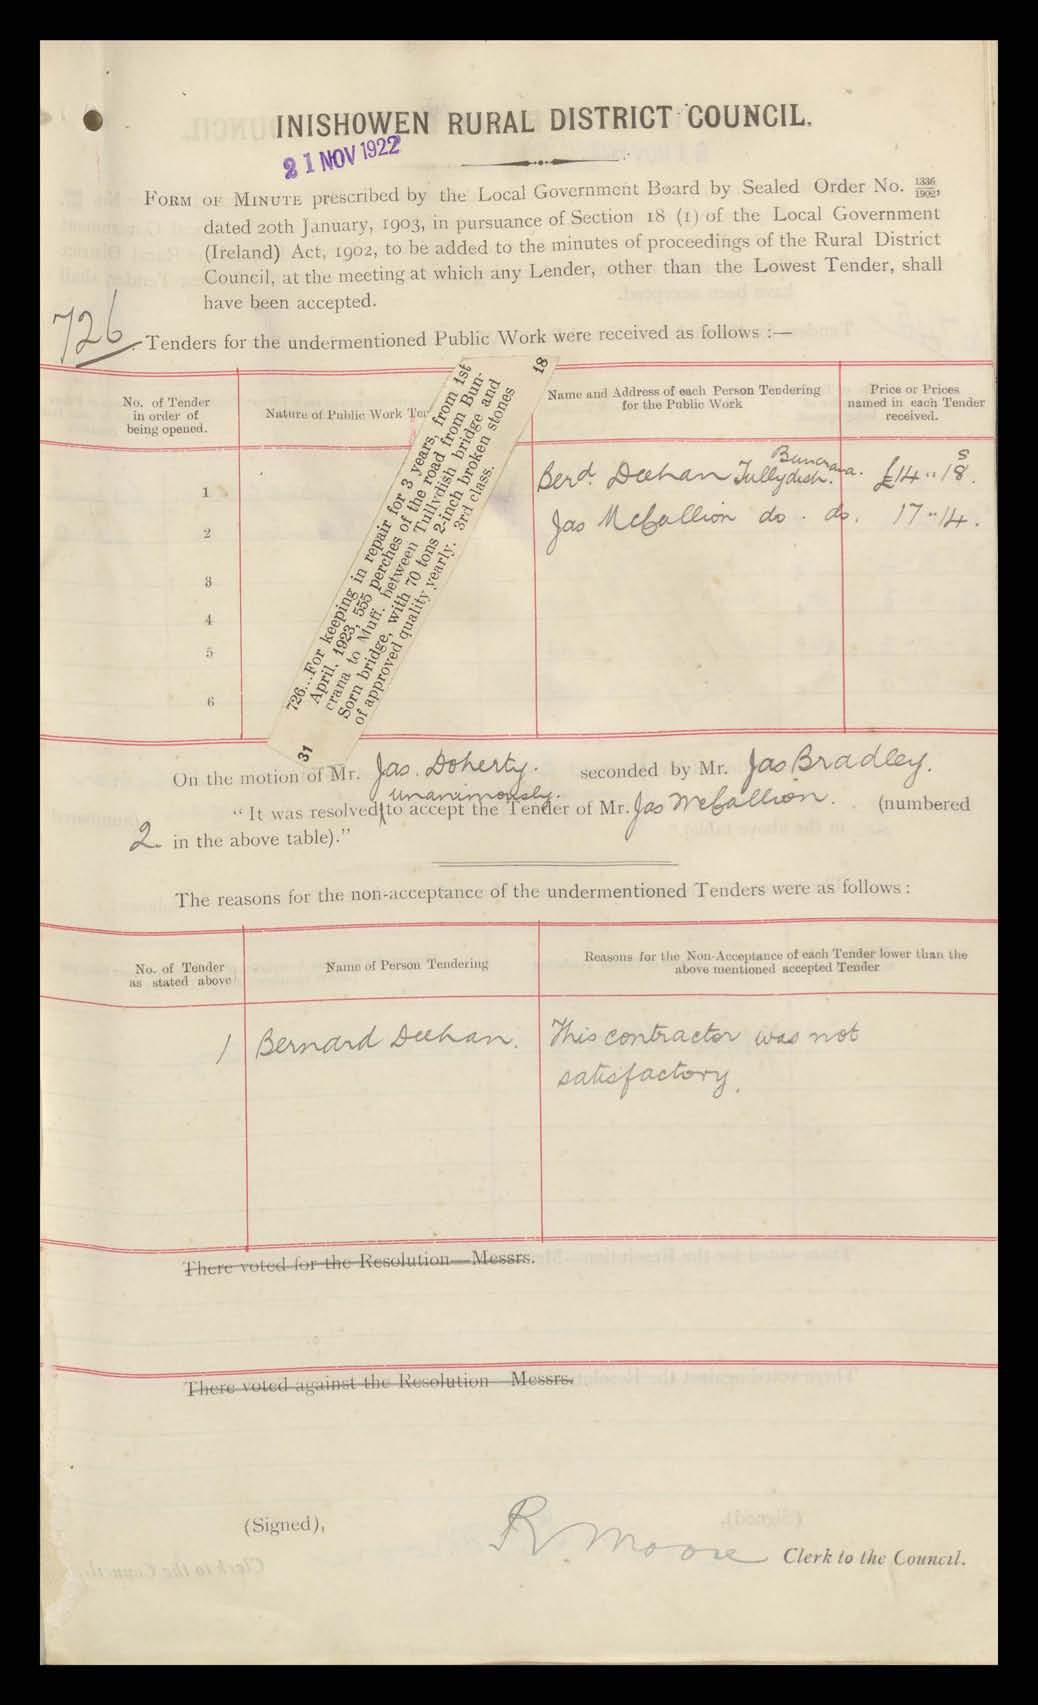 INISHOWEN RURAL DISTRICT COUNCIL.
21 NOV 1922
FORM OF MINUTE prescribed by the Local Government Board by Sealed Order No. 1336/1902,
dated 20th January, 1903, in pursuance of Section 18 (1) of the Local Government
(Ireland) Act, 1902, to be added to the minutes of proceedings of the Rural District
Council, at the meeting at which any Lender, other than the Lowest Tender, shall
have been accepted.
726.
Tenders for the undermentioned Public Work were received as follows :—
No. of Tender
in order of
being opened.
Nature of Public Work Ten
Name and Address of each Person Tendering
for the Public Work
Price or Prices
named in each Tender
received.
31 18
726...For keeping in repair for 3 years, from 1st
April, 1923, 555 perches of the road from Bun-
crana to Muff, between Tullydish bridge and
Sorn bridge, with 70 tons 2-inch broken stones
of approved quality yearly. 3rd class.
1 Berd. Deehan Tullydish. Buncrana. £14 " 18s.
2 Jas McCallion do. do. 17 " 14.
3
4
5
6
On the motion of Mr. Jas. Doherty. seconded by Mr. Jas Bradley.
unanimously.
"It was resolved to accept the Tender of Mr. Jas McCallion. (numbered
2. in the above table)."
The reasons for the non-acceptance of the undermentioned Tenders were as follows :
No. of Tender
as stated above
Name of Person Tendering
Reasons for the Non-Acceptance of each Tender lower than the
above mentioned accepted Tender
1 Bernard Deehan. This contractor was not
satisfactory.
There voted for the Resolution—Messrs.
There voted against the Resolution—Messrs.
(Signed), R. Moore Clerk to the Council.